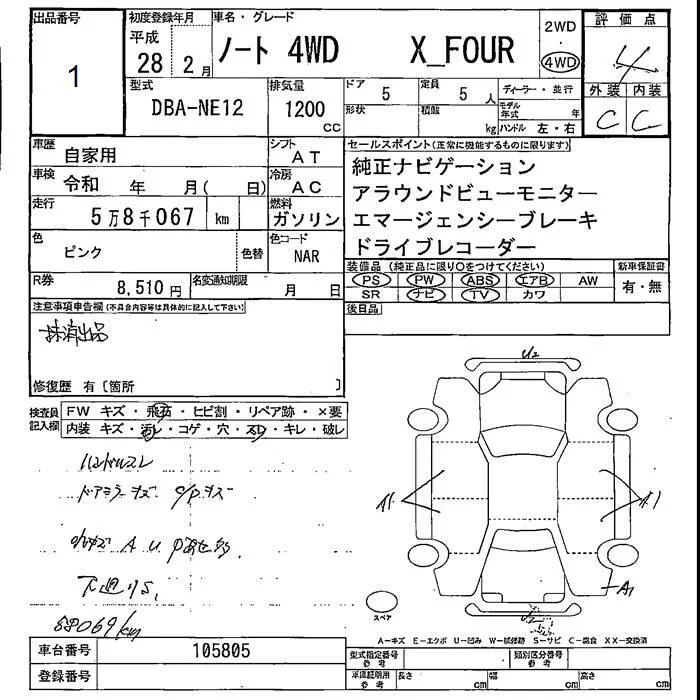 出品番号
1
初度登録年月
平成
28 2月
車名・グレード
ノート 4WD X_FOUR
2WD
・
4WD
評価点
4
外装 内装
C C
型式
DBA-NE12
排気量
1200
CC
ドア 5
定員 5 人
形状
積載 kg
ディーラー・並行
モデル年式 年
ハンドル 左・右
車歴
自家用
シフト
AT
車検
令和 年 月( 日)
冷房
AC
走行
5万8千067 km
燃料
ガソリン
色
ピンク
色替
色コード
NAR
R券
8,510円
名変通知期限
月 日
セールスポイント(正常に機能するものに限ります)
純正ナビゲーション
アラウンドビューモニター
エマージェンシーブレーキ
ドライブレコーダー
装備品 (純正品に限り○をつけてください)
PS PW ABS エアB AW
SR ナビ TV カワ
新車保証書
有・無
後日品
注意事項申告欄(不具合内容等は具体的に記入して下さい)
抹消出品
修復歴 有〔箇所 〕
検査員記入欄
FW キズ・飛石・ヒビ割・リペア跡・×要
内装 キズ・汚レ・コゲ・穴・スレ・キレ・破レ
ハンドルスレ
ドアミラーキズ
A U
下廻りS
58069km
U2
A1
A1
A1
スペア
A-キズ E-エクボ U-凹み W-補修跡 S-サビ C-腐食 XX-交換済
車台番号
105805
登録番号
型式指定番号
参考
類別区分番号
参考
車庫証明用
参考
長さ cm
幅 cm
高さ cm